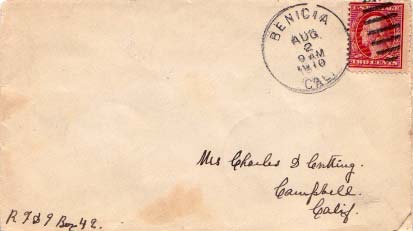 BENICIA
AUG.
2
9 AM
1910
CAL.
TWO CENTS
Mrs Charles D Cutting.
Campbell.
Calif.
R F D 9 Box 42.